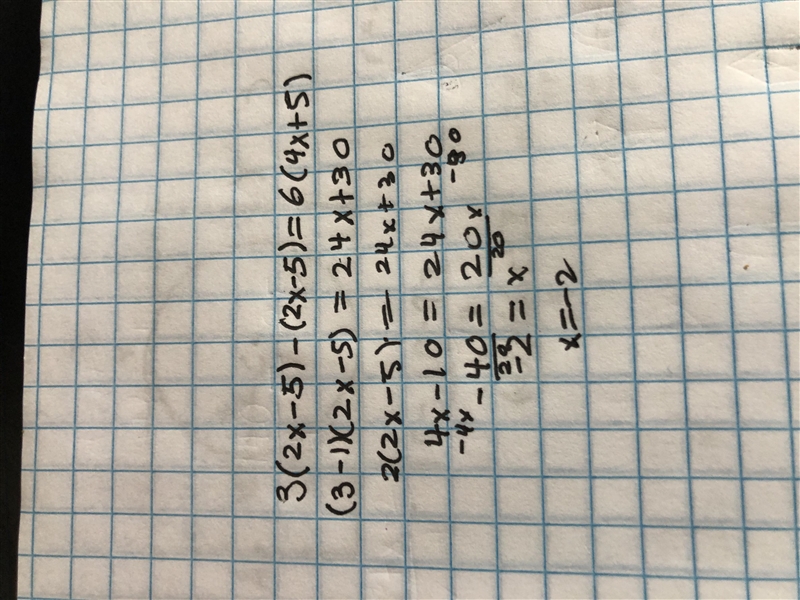 3(2x-5)-(2x-5)=6(4x+5)
(3-1)(2x-5)=24x+30
2(2x-5)=24x+30
4x-10=24x+30
-4x -30
-40=20x
20 20
-2=x
x=-2